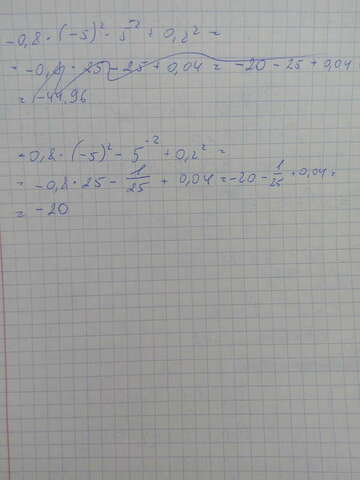 -0,8 · (-5)² - 5⁻² + 0,2² =
= -0,8 · 25 - 25 + 0,04 = -20 - 25 + 0,04
= -44,96
-0,8 · (-5)² - 5⁻² + 0,2² =
= -0,8 · 25 - 1/25 + 0,04 = -20 - 1/25 + 0,04 =
= -20